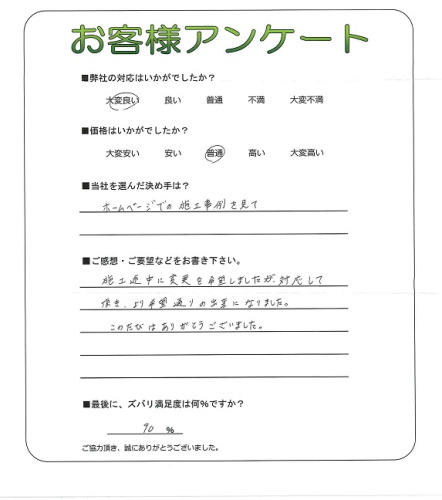 お客様アンケート
■弊社の対応はいかがでしたか？
大変良い 良い 普通 不満 大変不満
■価格はいかがでしたか？
大変安い 安い 普通 高い 大変高い
■当社を選んだ決め手は？
ホームページでの施工事例を見て
■ご感想・ご要望などをお書き下さい。
施工途中に変更を希望しましたが、対応して
頂き、より希望通りの出来になりました。
このたびはありがとうございました。
■最後に、ズバリ満足度は何%ですか？
90 %
ご協力頂き、誠にありがとうございました。